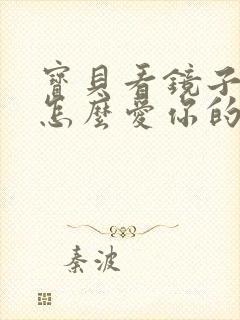 寶貝看鏡子
怎麼愛你的
秦波